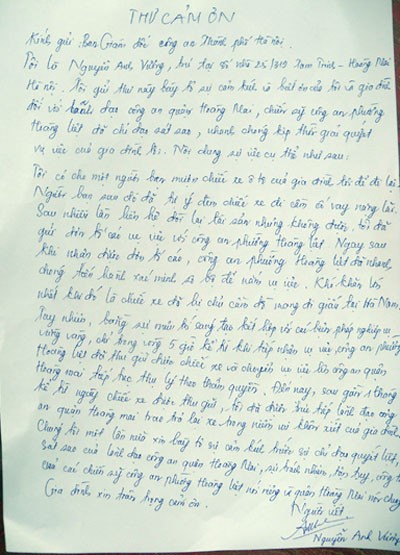 THƯ CẢM ƠN
Kính gửi: Ban Giám đốc công an Thành phố Hà Nội.
Tôi là Nguyễn Anh Vương, trú tại số nhà 25/319 Tam Trinh - Hoàng Mai
Hà Nội. Tôi gửi thư này bày tỏ sự cảm kích và biết ơn của tôi và gia đình
đối với lãnh đạo công an quận Hoàng Mai, chiến sỹ công an phường
Hoàng Liệt đã chỉ đạo sát sao, nhanh chóng kịp thời giải quyết
vụ việc của gia đình tôi. Nội dung sự việc cụ thể như sau:
Tôi có cho một người bạn mượn chiếc xe ô tô của gia đình tôi để đi lại.
Người bạn sau đó đã tự ý đem chiếc xe đi cầm cố vay nặng lãi.
Sau nhiều lần liên hệ đòi lại tài sản nhưng không được, tôi đã
gửi đơn tố cáo vụ việc với công an phường Hoàng Liệt. Ngay sau
khi nhận được đơn tố cáo, công an phường Hoàng Liệt đã nhanh
chóng tiến hành xác minh sơ bộ để nắm vụ việc. Khó khăn lớn
nhất khi đó là chiếc xe đã bị chủ cầm đồ mang đi giấu tại Hà Nam.
Tuy nhiên, bằng sự mưu trí sáng tạo kết hợp với các biện pháp nghiệp vụ
vững vàng, chỉ trong vòng 5 giờ kể từ khi tiếp nhận vụ việc, công an phường
Hoàng Liệt đã thu giữ được chiếc xe và chuyển vụ việc lên công an quận
Hoàng Mai tiếp tục thụ lý theo thẩm quyền. Đến nay, sau gần tháng
kể từ ngày chiếc xe được thu giữ, tôi đã được trực tiếp lãnh đạo công
an quận Hoàng Mai trao trả lại xe trong niềm vui khôn xiết của gia đình.
Chúng tôi một lần nữa xin bày tỏ sự cảm kích trước sự chỉ đạo quyết liệt,
sát sao của lãnh đạo công an quận Hoàng Mai, sự trách nhiệm, tận tụy, công tâm
của các chiến sỹ công an phường Hoàng Liệt nói riêng và quận Hoàng Mai nói chung
Gia đình xin trân trọng cảm ơn.
Người viết
Nguyễn Anh Vương